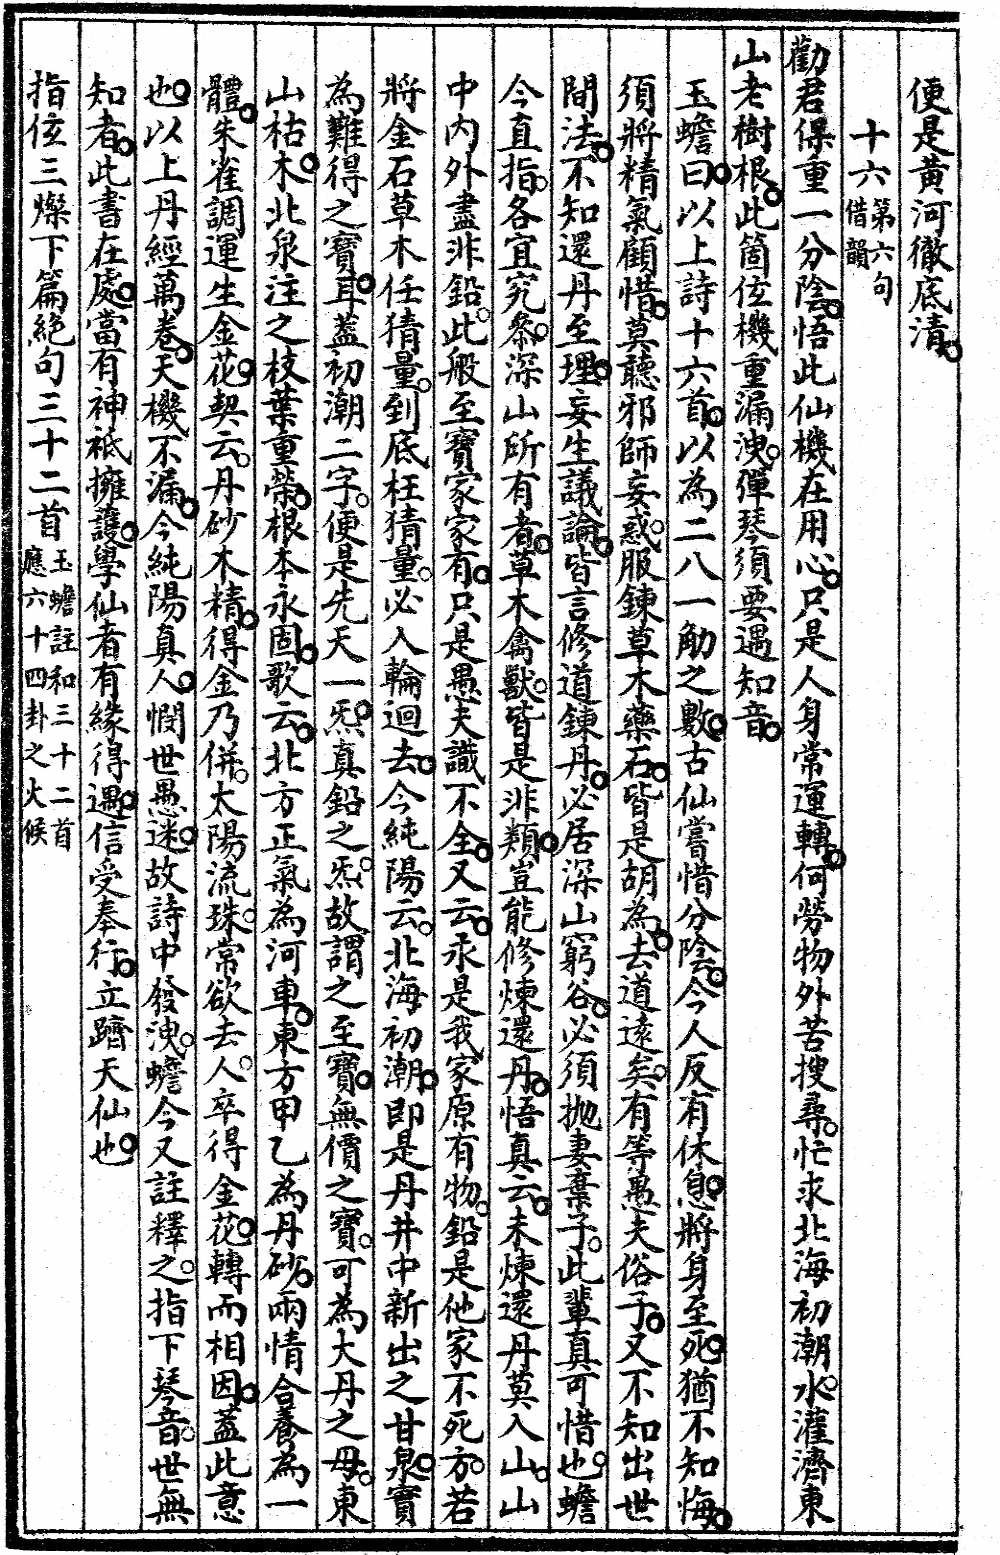 便是黃河徹底清
十六第六句借韻
勸君保重一分陰悟此仙機在用心只是人身常運轉何勞物外苦搜尋忙求北海初潮水灌濟東
山老樹根此箇位機重漏洩彈琴須要遇知音
玉蟾曰以上詩十六首以為二八一觔之數古仙嘗惜分陰今人反有休息將身至死猶不知悔
須將精氣顧惜莫聽邪師妄惑服鍊草木藥石皆是胡為去道遠矣有等愚夫俗子又不知出世
間法不知還丹至理妄生議論皆言修道鍊丹必居深山窮谷必須拋妻棄子此輩真可惜也蟾
今直指各宜究參深山所有者草木禽獸皆是非類豈能修煉還丹悟真云未煉還丹莫入山山
中內外盡非鉛此般至寶家家有只是愚夫識不全又云永是我家原有物鉛是他家不死方若
將金石草木任猜量到底枉猜量必入輪迴去今純陽云北海初潮即是丹井中新出之甘泉實
為難得之寶耳蓋初潮二字便是先天一炁真鉛之炁故謂之至寶無價之寶可為大丹之母東
山枯木北泉注之枝葉重榮根本永固歌云北方正氣為河車東方甲乙為丹砂兩情合養為一
體朱雀調運生金花契云丹砂木精得金乃併太陽流珠常欲去人卒得金花轉而相因蓋此意
也以上丹經萬卷天機不漏今純陽真人憫世愚迷故詩中發洩蟾今又註釋之指下琴音世無
知者此書在處當有神祇擁護學仙者有緣得遇信受奉行立躋天仙也
指位三爍下篇絕句三十二首玉蟾註和三十二首應六十四卦之火候